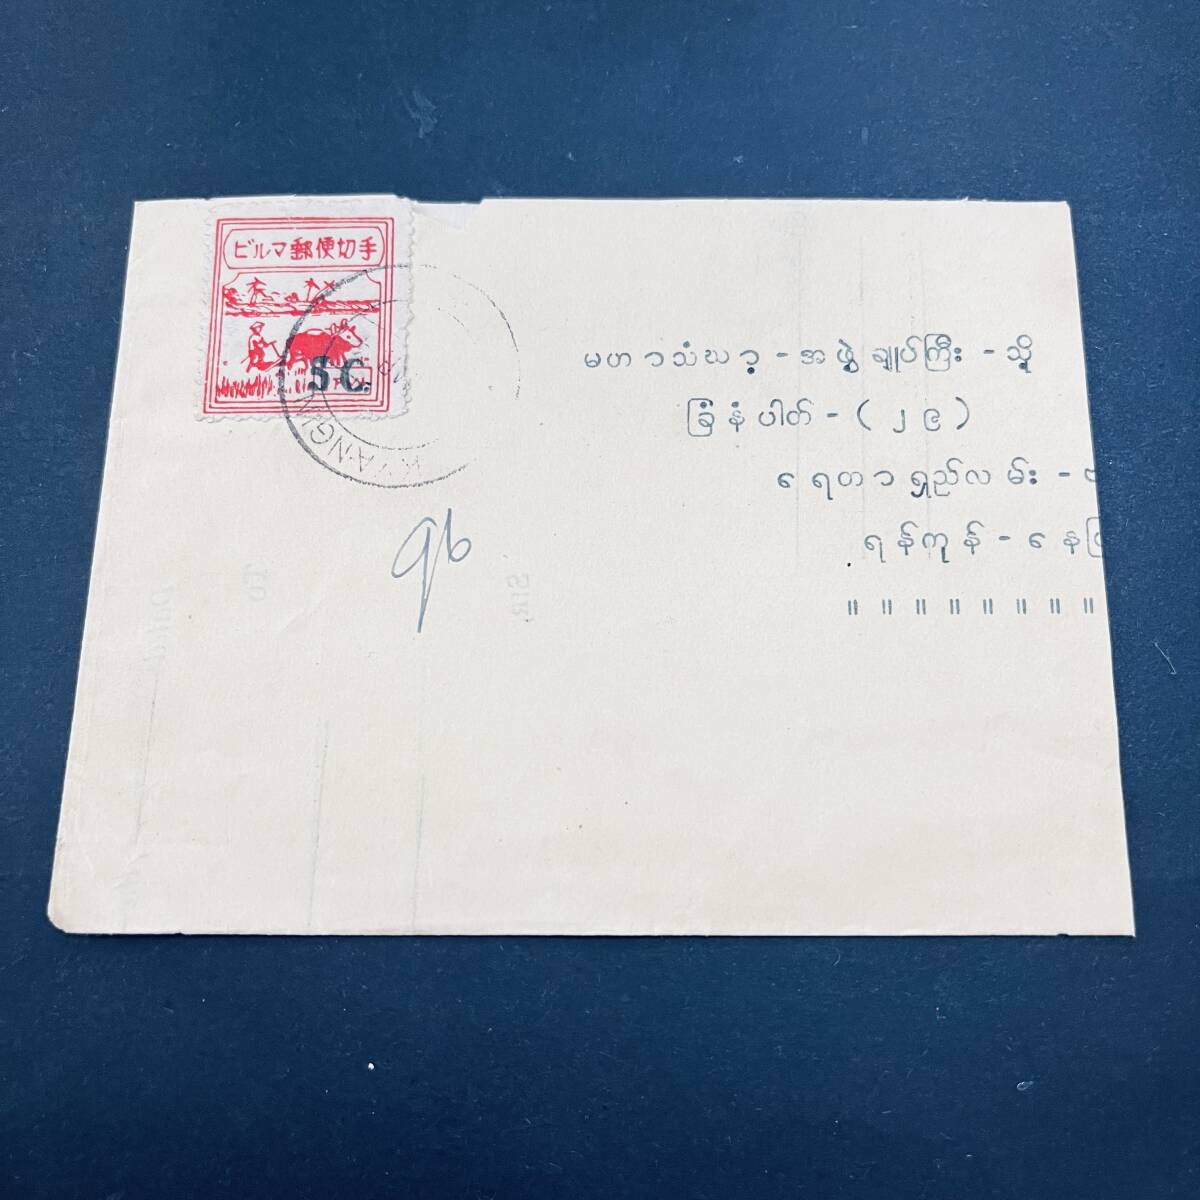 ビルマ郵便切手
5 C.
KYANGIN
မဟာသံဃာ့-အဖွဲ့ချုပ်ကြီး-သို့
ခြံနံပါတ်-(၂၉)
ရေတာရှည်လမ်း-
ရန်ကုန်-
" " " " " " " "
96
To
Sir,